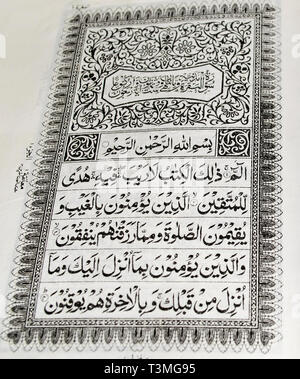 بِسْمِ اللهِ الرَّحْمٰنِ الرَّحِيْمِ
الٓمّٓ ذٰلِكَ الْكِتٰبُ لَا رَيْبَ فِيْهِ هُدًى
لِّلْمُتَّقِيْنَ الَّذِيْنَ يُؤْمِنُوْنَ بِالْغَيْبِ وَ
يُقِيْمُوْنَ الصَّلٰوةَ وَمِمَّا رَزَقْنٰهُمْ يُنْفِقُوْنَ
وَالَّذِيْنَ يُؤْمِنُوْنَ بِمَآ اُنْزِلَ اِلَيْكَ وَمَآ
اُنْزِلَ مِنْ قَبْلِكَ وَبِالْاٰخِرَةِ هُمْ يُوْقِنُوْنَ
alamy
T3MG95